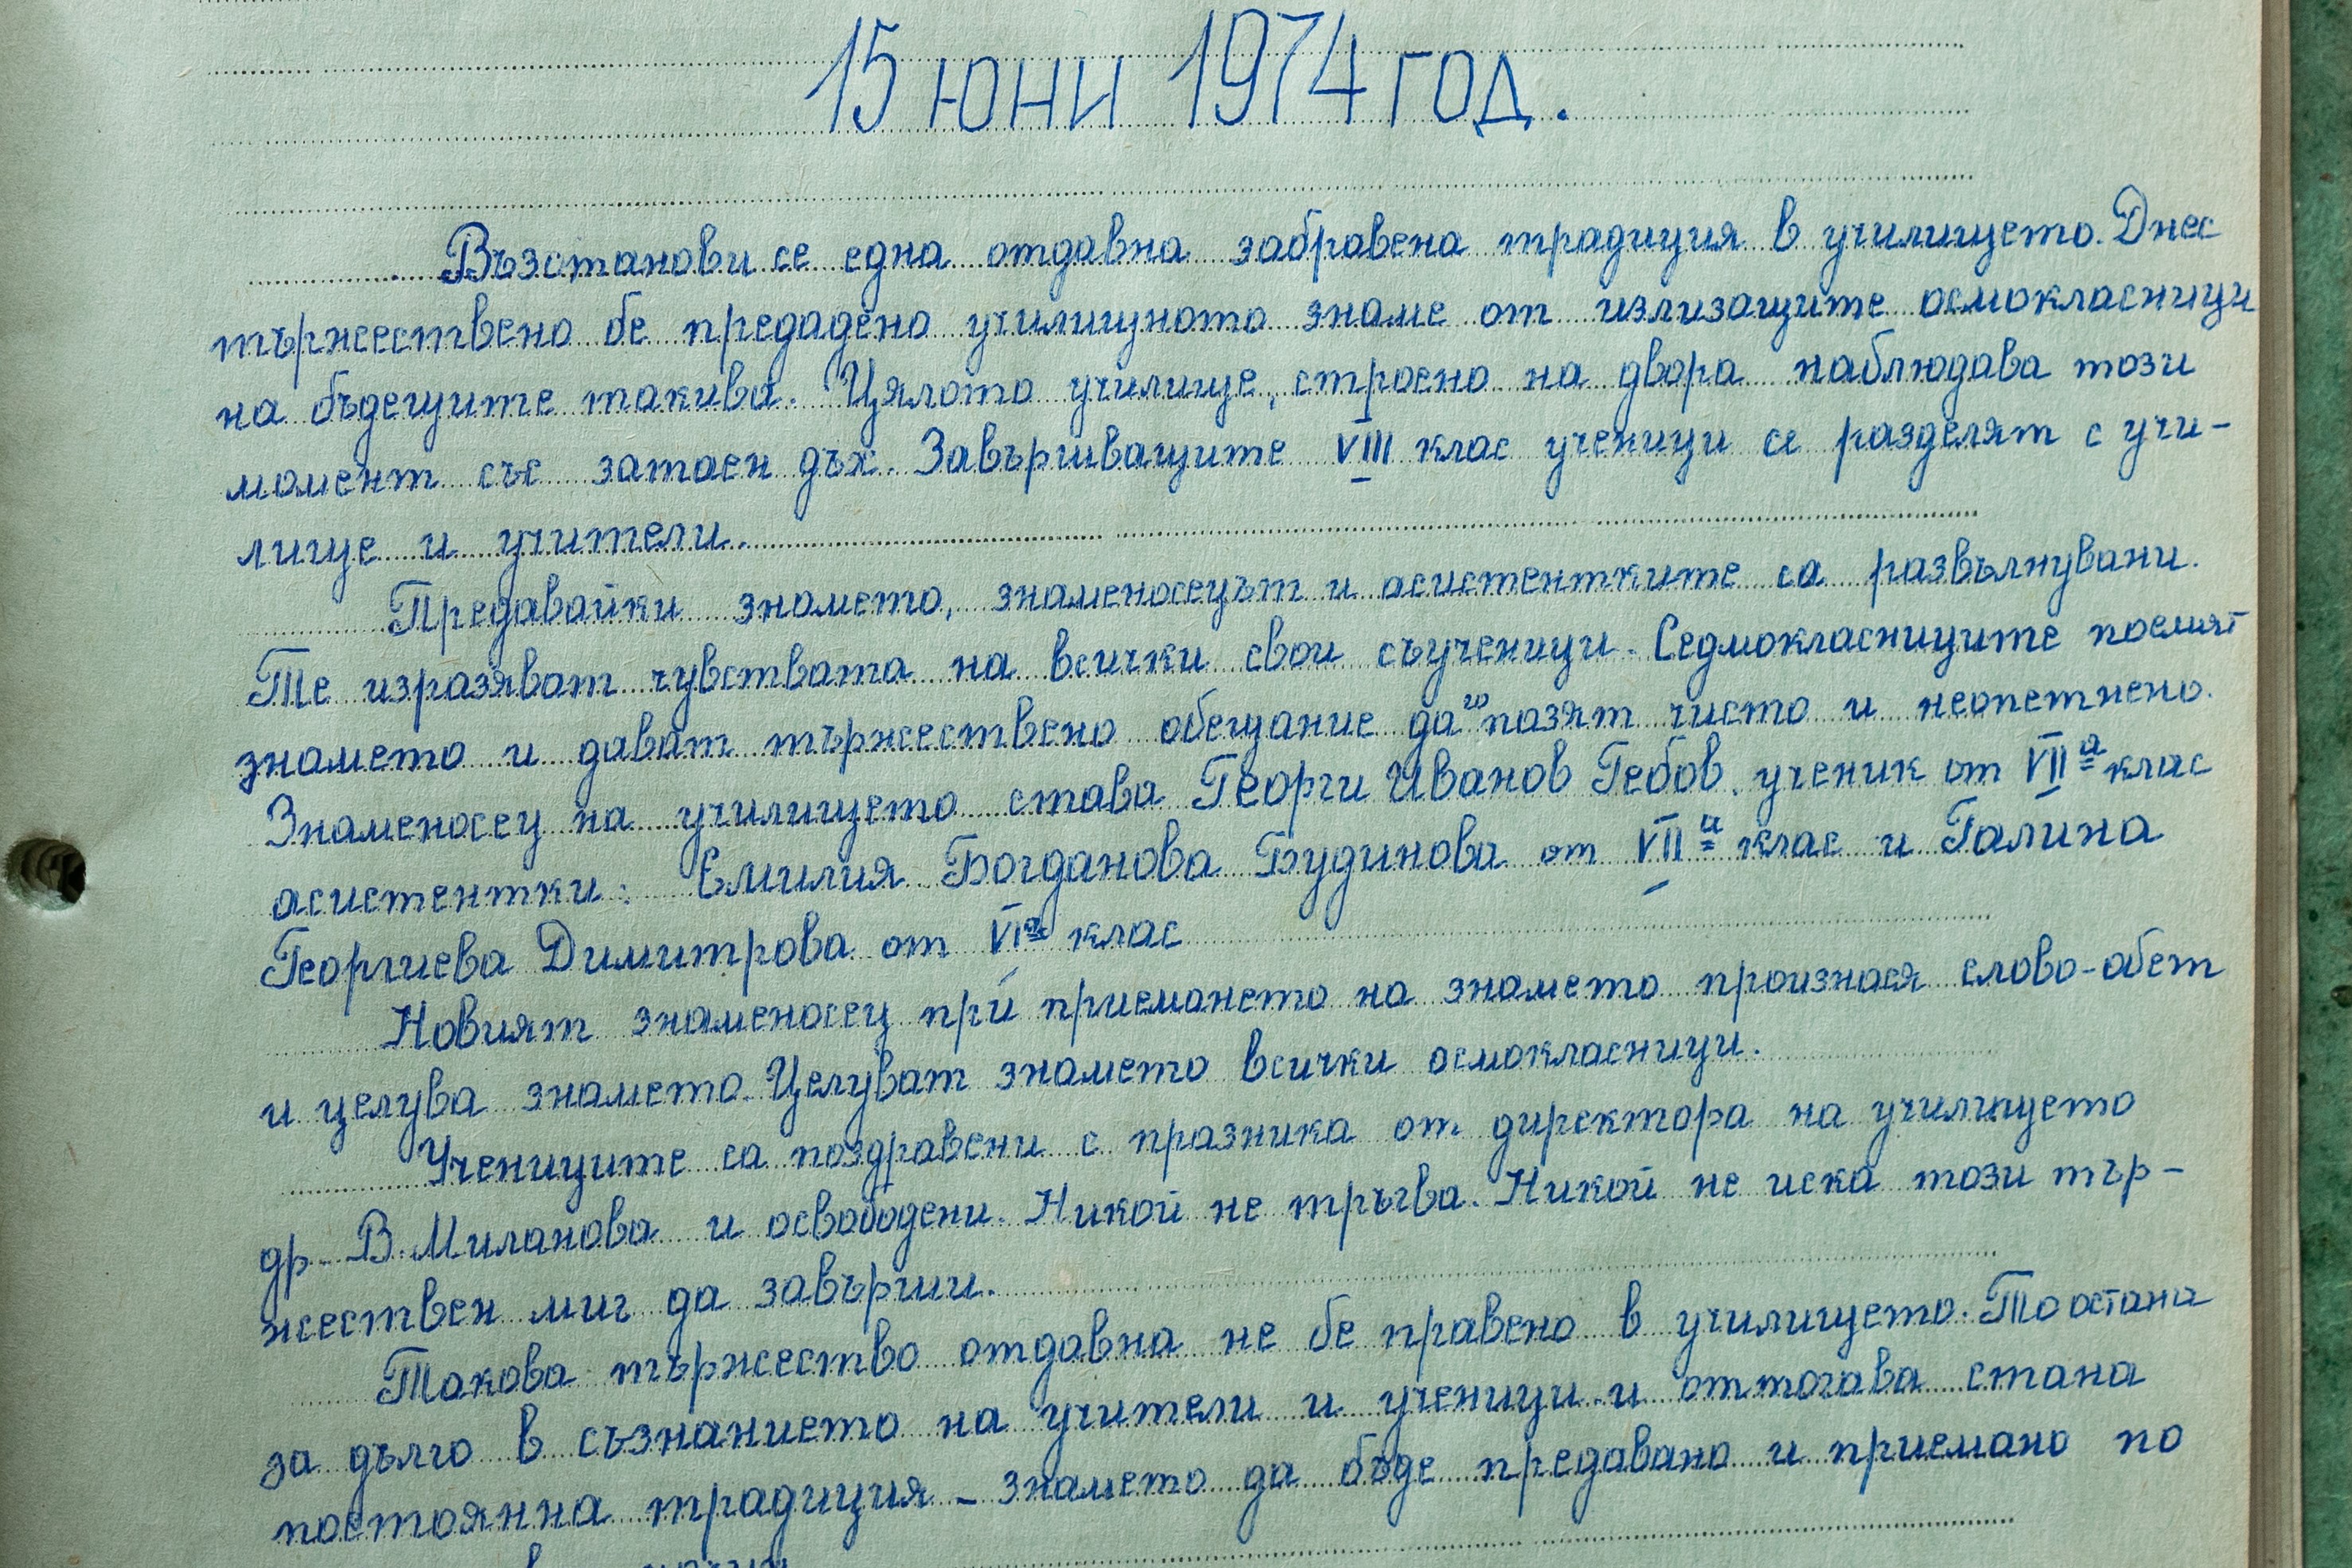 15 юни 1974 год.
Възстанови се една отдавна забравена традиция в училището. Днес
тържествено бе предадено училищното знаме от излизащите осмокласници
на бъдещите такива. Цялото училище, строено на двора наблюдава този
момент със затаен дъх. Завършващите VIII клас ученици се разделят с учи-
лище и учители.
Предавайки знамето, знаменосецът и асистентките са развълнувани.
Те изразяват чувствата на всички свои съученици. Седмокласниците поемат
знамето и дават тържествено обещание да го пазят чисто и неопетнено.
Знаменосец на училището става Георги Иванов Гебов, ученик от VIIа клас
асистентки: Емилия Богданова Будинова от VIIа клас и Галина
Георгиева Димитрова от VIа клас
Новият знаменосец при приемането на знамето произнася слово-обет
и целува знамето. Целуват знамето всички осмокласници.
Учениците са поздравени с празника от директора на училището
др. В. Миланова и освободени. Никой не тръгва. Никой не иска този тър-
жествен миг да завърши.
Такова тържество отдавна не бе правено в училището. То остана
за дълго в съзнанието на учители и ученици и оттогава стана
постоянна традиция - знамето да бъде предавано и приемано по